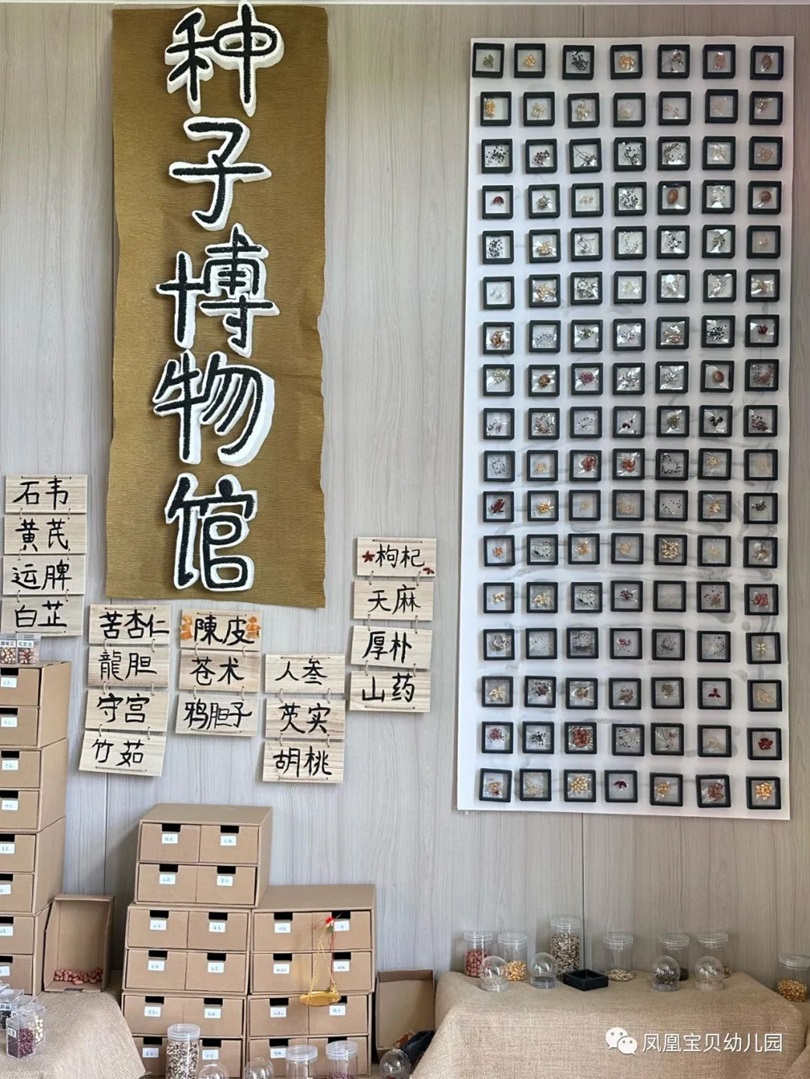 种子博物馆
石韦
黄芪
运脾
白芷
苦杏仁
龍胆
守宫
竹茹
陳皮
苍术
鸦胆子
人叁
芡实
胡桃
枸杞
天麻
厚朴
山药
凤凰宝贝幼儿园